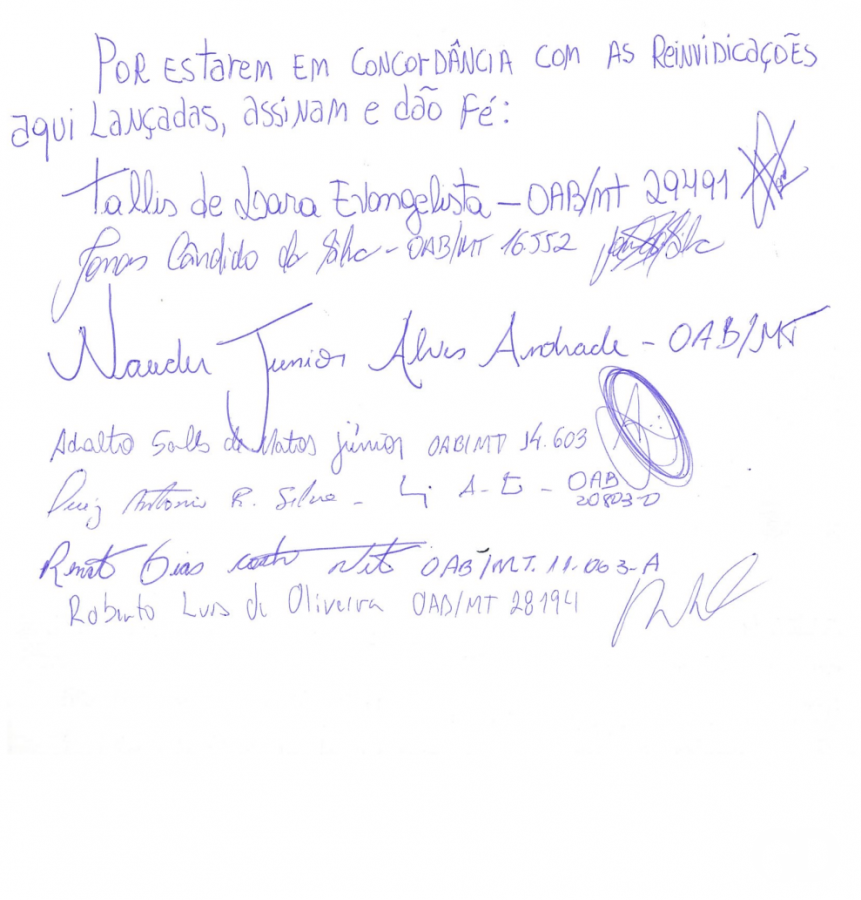 POR EStaREM EM CONCORDÂNCIA COM AS REINVIDICAÇÕES
aqui LANÇADAS, ASSINAM e dão Fé:
Tallis de Lara Evangelista - OAB/MT 29491
Jonas Cândido da Silva - OAB/MT 16552
Nauder Junior Alves Andrade - OAB/MT
Adalto Salles de Matos Júnior OAB/MT 14.603
Luiz Antonio R. Silva - OAB
20803-O
Renato Dias Neto OAB/MT. 11.063-A
Roberto Luis de Oliveira OAB/MT 28194